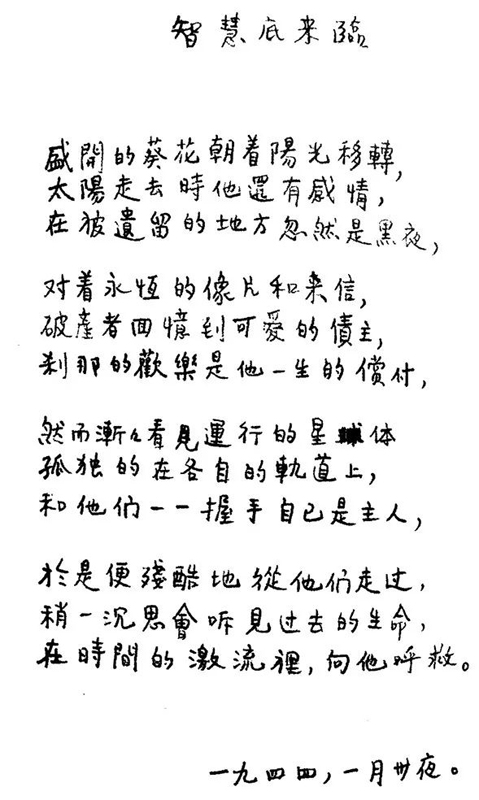 智慧底来臨
盛開的葵花朝着陽光移轉，
太陽走去時他還有感情，
在被遺留的地方忽然是黑夜，
对着永恆的像片和来信，
破產者回憶到可爱的債主，
刹那的歡樂是他一生的償付，
然而漸々看見運行的星体
孤独的在各自的軌道上，
和他們一一握手自己是主人，
於是便殘酷地從他們走过，
稍一沉思會听見过去的生命，
在時間的激流裡，向他呼救。
一九四四，一月卅夜。